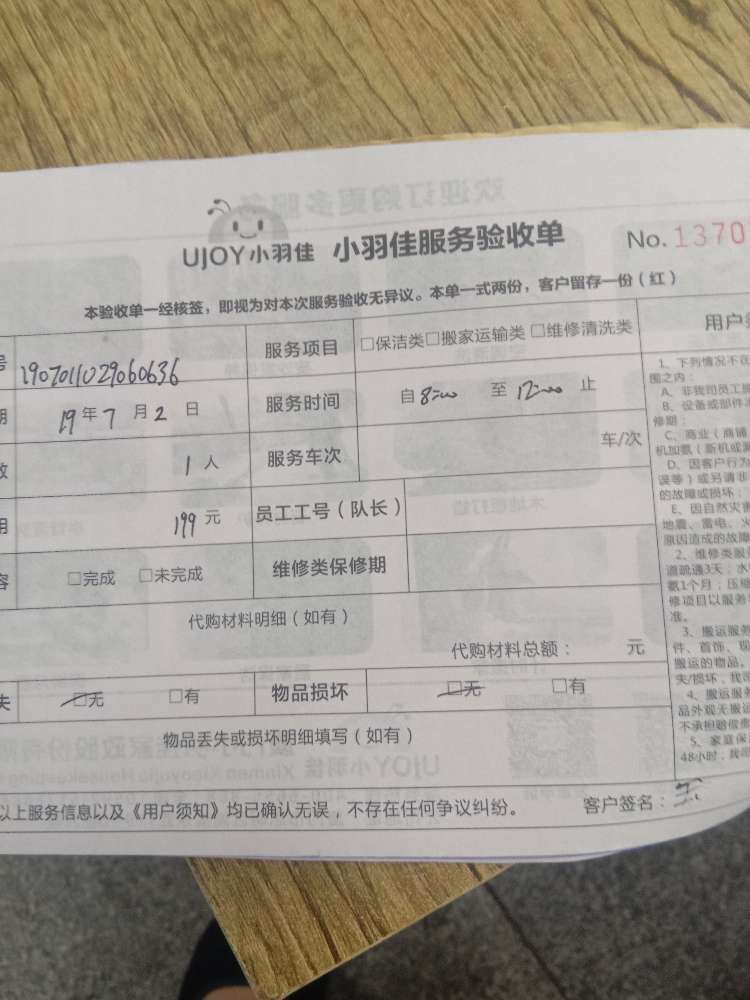 UJOY小羽佳 小羽佳服务验收单 No.1370
本验收单一经核签，即视为对本次服务验收无异议。本单一式两份，客户留存一份（红）
号 1907011029060636 服务项目 □保洁类□搬家运输类□维修清洗类
期 19年7月2日 服务时间 自8:00 至12:00止
数 1人 服务车次 车/次
用 199元 员工工号（队长）
容 □完成 □未完成 维修类保修期
代购材料明细（如有）
代购材料总额： 元
失 □无 □有 物品损坏 □无 □有
物品丢失或损坏明细填写（如有）
以上服务信息以及《用户须知》均已确认无误，不存在任何争议纠纷。 客户签名：
用户须
1、下列情况不在
围之内：
A、非我司员工
B、设备或部件
修期；
C、商业（商铺
机加氨（新机或
D、因客户行为
误等）或另请
的故障或损坏；
E、因自然灾害
地震、雷电、火
原因造成的故障
2、维修类服
道疏通3天；水
氨1个月；压缩
修项目以服务
准。
3、搬运服务
件、首饰、现
搬运的物品，
失/损坏，我
4、搬运服务
品外观无搬运
不承担赔偿责
5、家庭保
48小时，我司